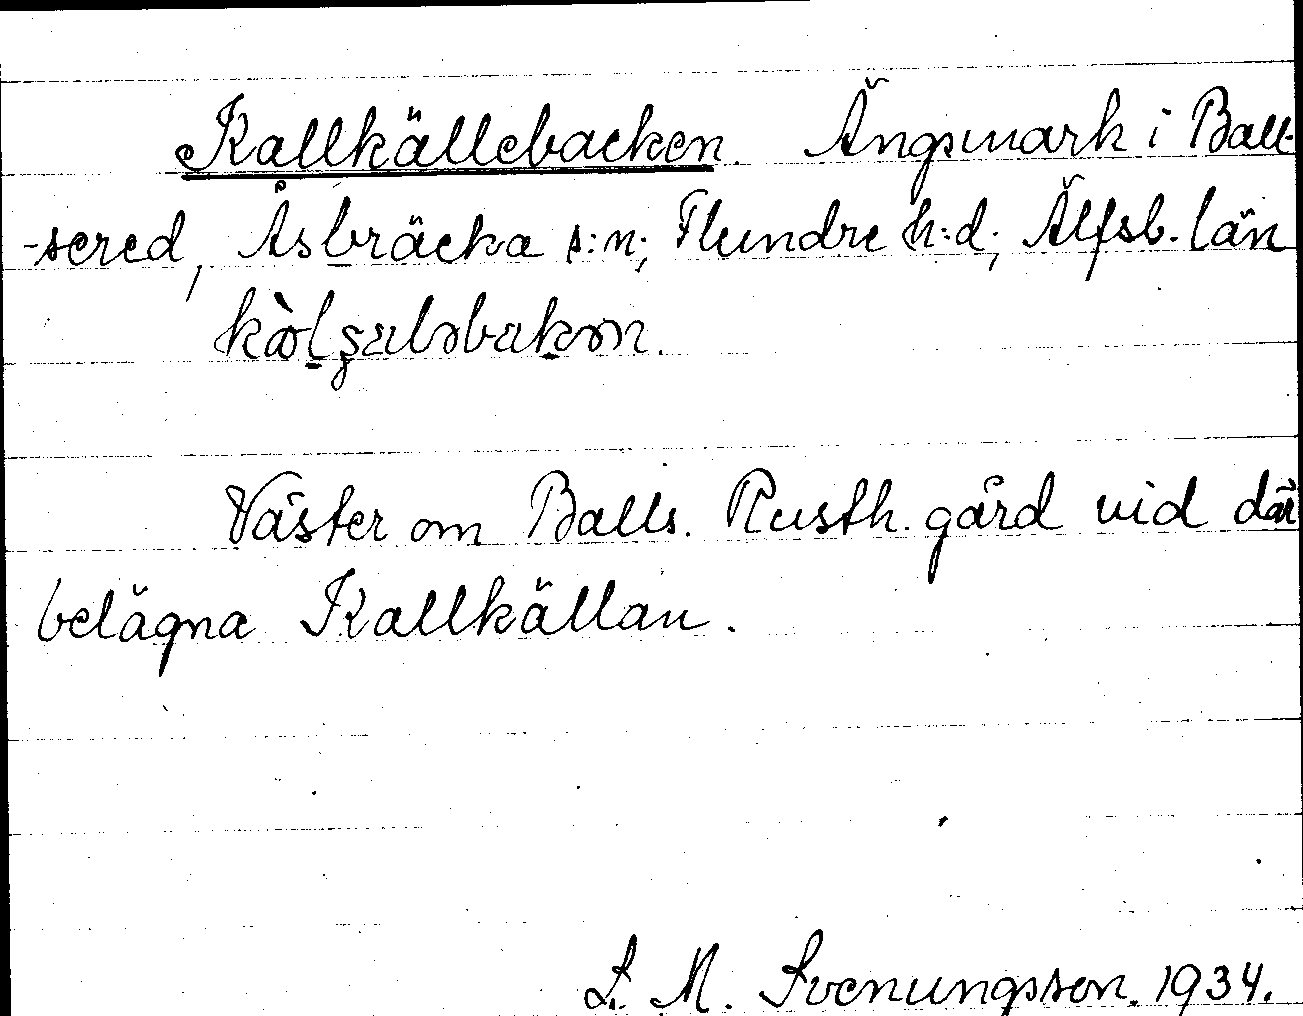 Kallkällebacken. Ängsmark i Ball-
-sered, Åsbräcka s:n; Flundre h:d; Älfsb. län
Väster om Balls. Rusth. gård vid där
belägna Kallkällan.
L. M. Svenungsson. 1934.